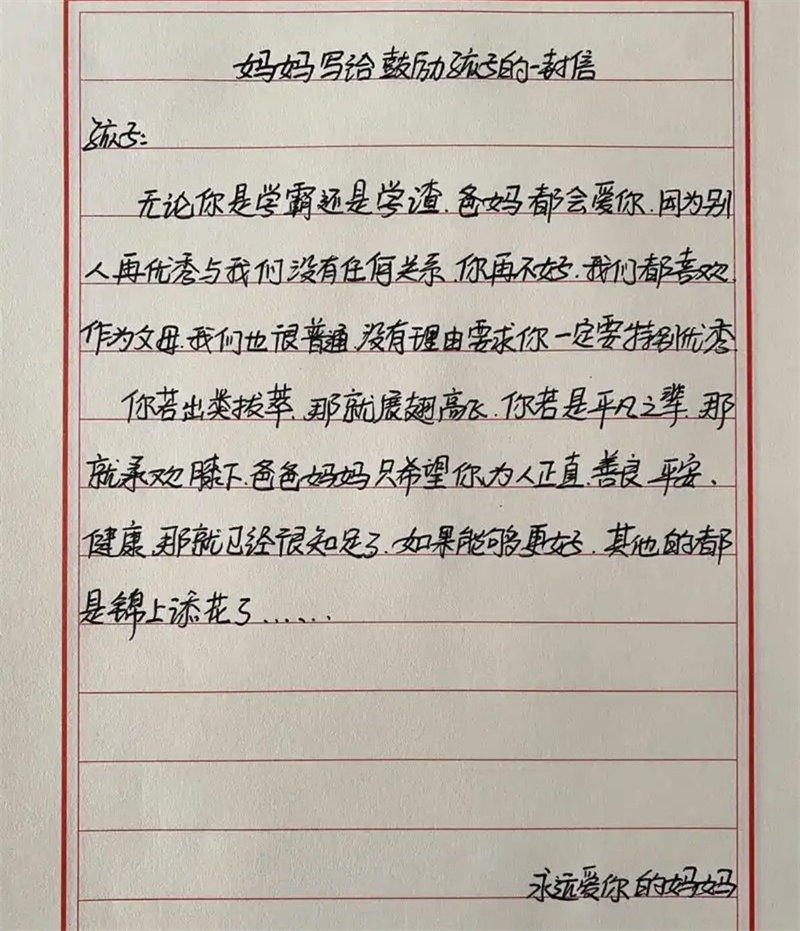 妈妈写给鼓励孩子的一封信
孩子:
无论你是学霸还是学渣.爸妈都会爱你.因为别
人再优秀与我们没有任何关系.你再不好.我们都喜欢.
作为父母.我们也很普通.没有理由要求你一定要特别优秀
你若出类拔萃.那就展翅高飞.你若是平凡之辈.那
就承欢膝下.爸爸妈妈只希望你.为人正直.善良.平安、
健康.那就已经很知足了.如果能够更好.其他的都
是锦上添花了......
永远爱你的妈妈